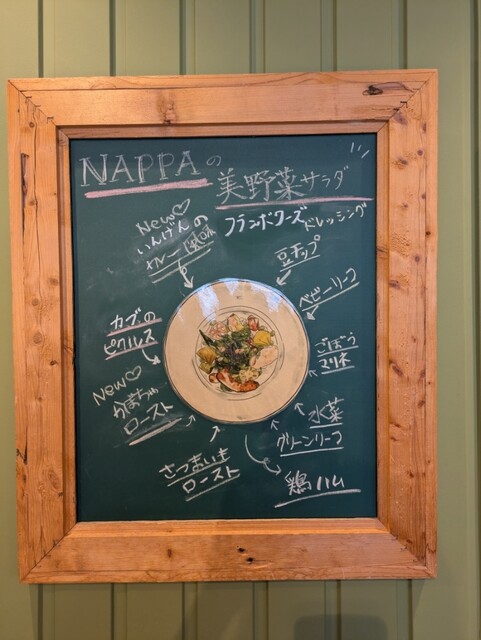 NAPPAの
美野菜サラダ
フランボワーズドレッシング
New♡
いんげんの
カレー風味
豆チップ
ベビーリーフ
カブの
ピクルス
ごぼう
マリネ
New♡
かぼちゃ
ロースト
水菜
グリーンリーフ
さつまいも
ロースト
鶏ハム